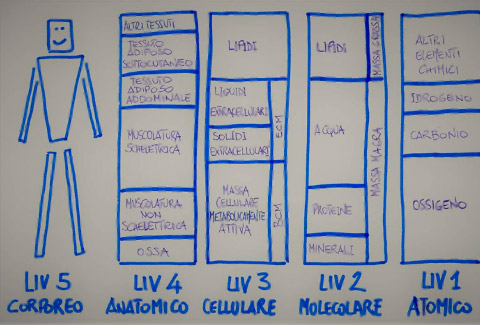 ALTRI TESSUTI
TESSUTO
ADIPOSO
SOTTOCUTANEO
TESSUTO
ADIPOSO
ADDOMINALE
MUSCOLATURA
SCHELETRICA
MUSCOLATURA
NON
SCHELETRICA
OSSA
LIPIDI
LIQUIDI
EXTRACELLULARI
SOLIDI
EXTRACELLULARI
ECM
MASSA
CELLULARE
METABOLICAMENTE
ATTIVA
BCM
LIPIDI
MASSA GRASSA
ACQUA
MASSA MAGRA
PROTEINE
MINERALI
ALTRI
ELEMENTI
CHIMICI
IDROGENO
CARBONIO
OSSIGENO
LIV 5
CORPOREO
LIV 4
ANATOMICO
LIV 3
CELLULARE
LIV 2
MOLECOLARE
LIV 1
ATOMICO